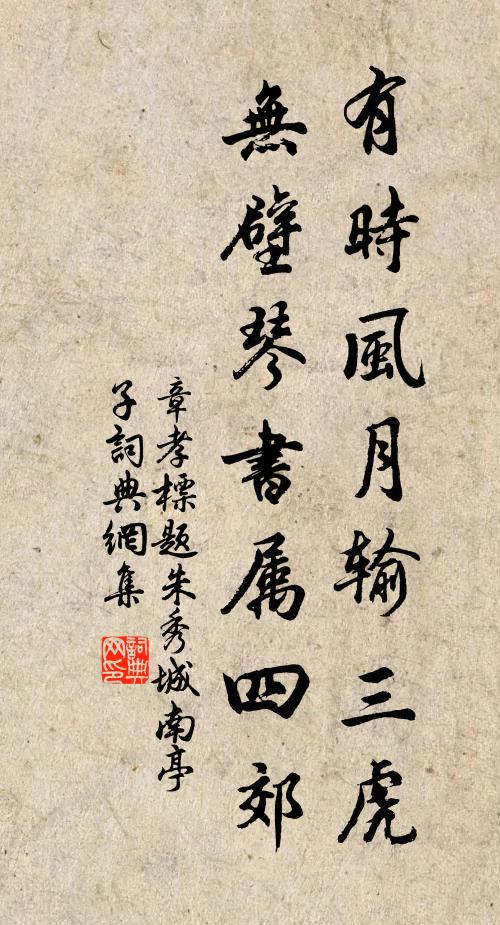 有時風月输三虎
無壁琴書属四郊
章孝標题朱秀城南亭
子詞典網集
詞典网印